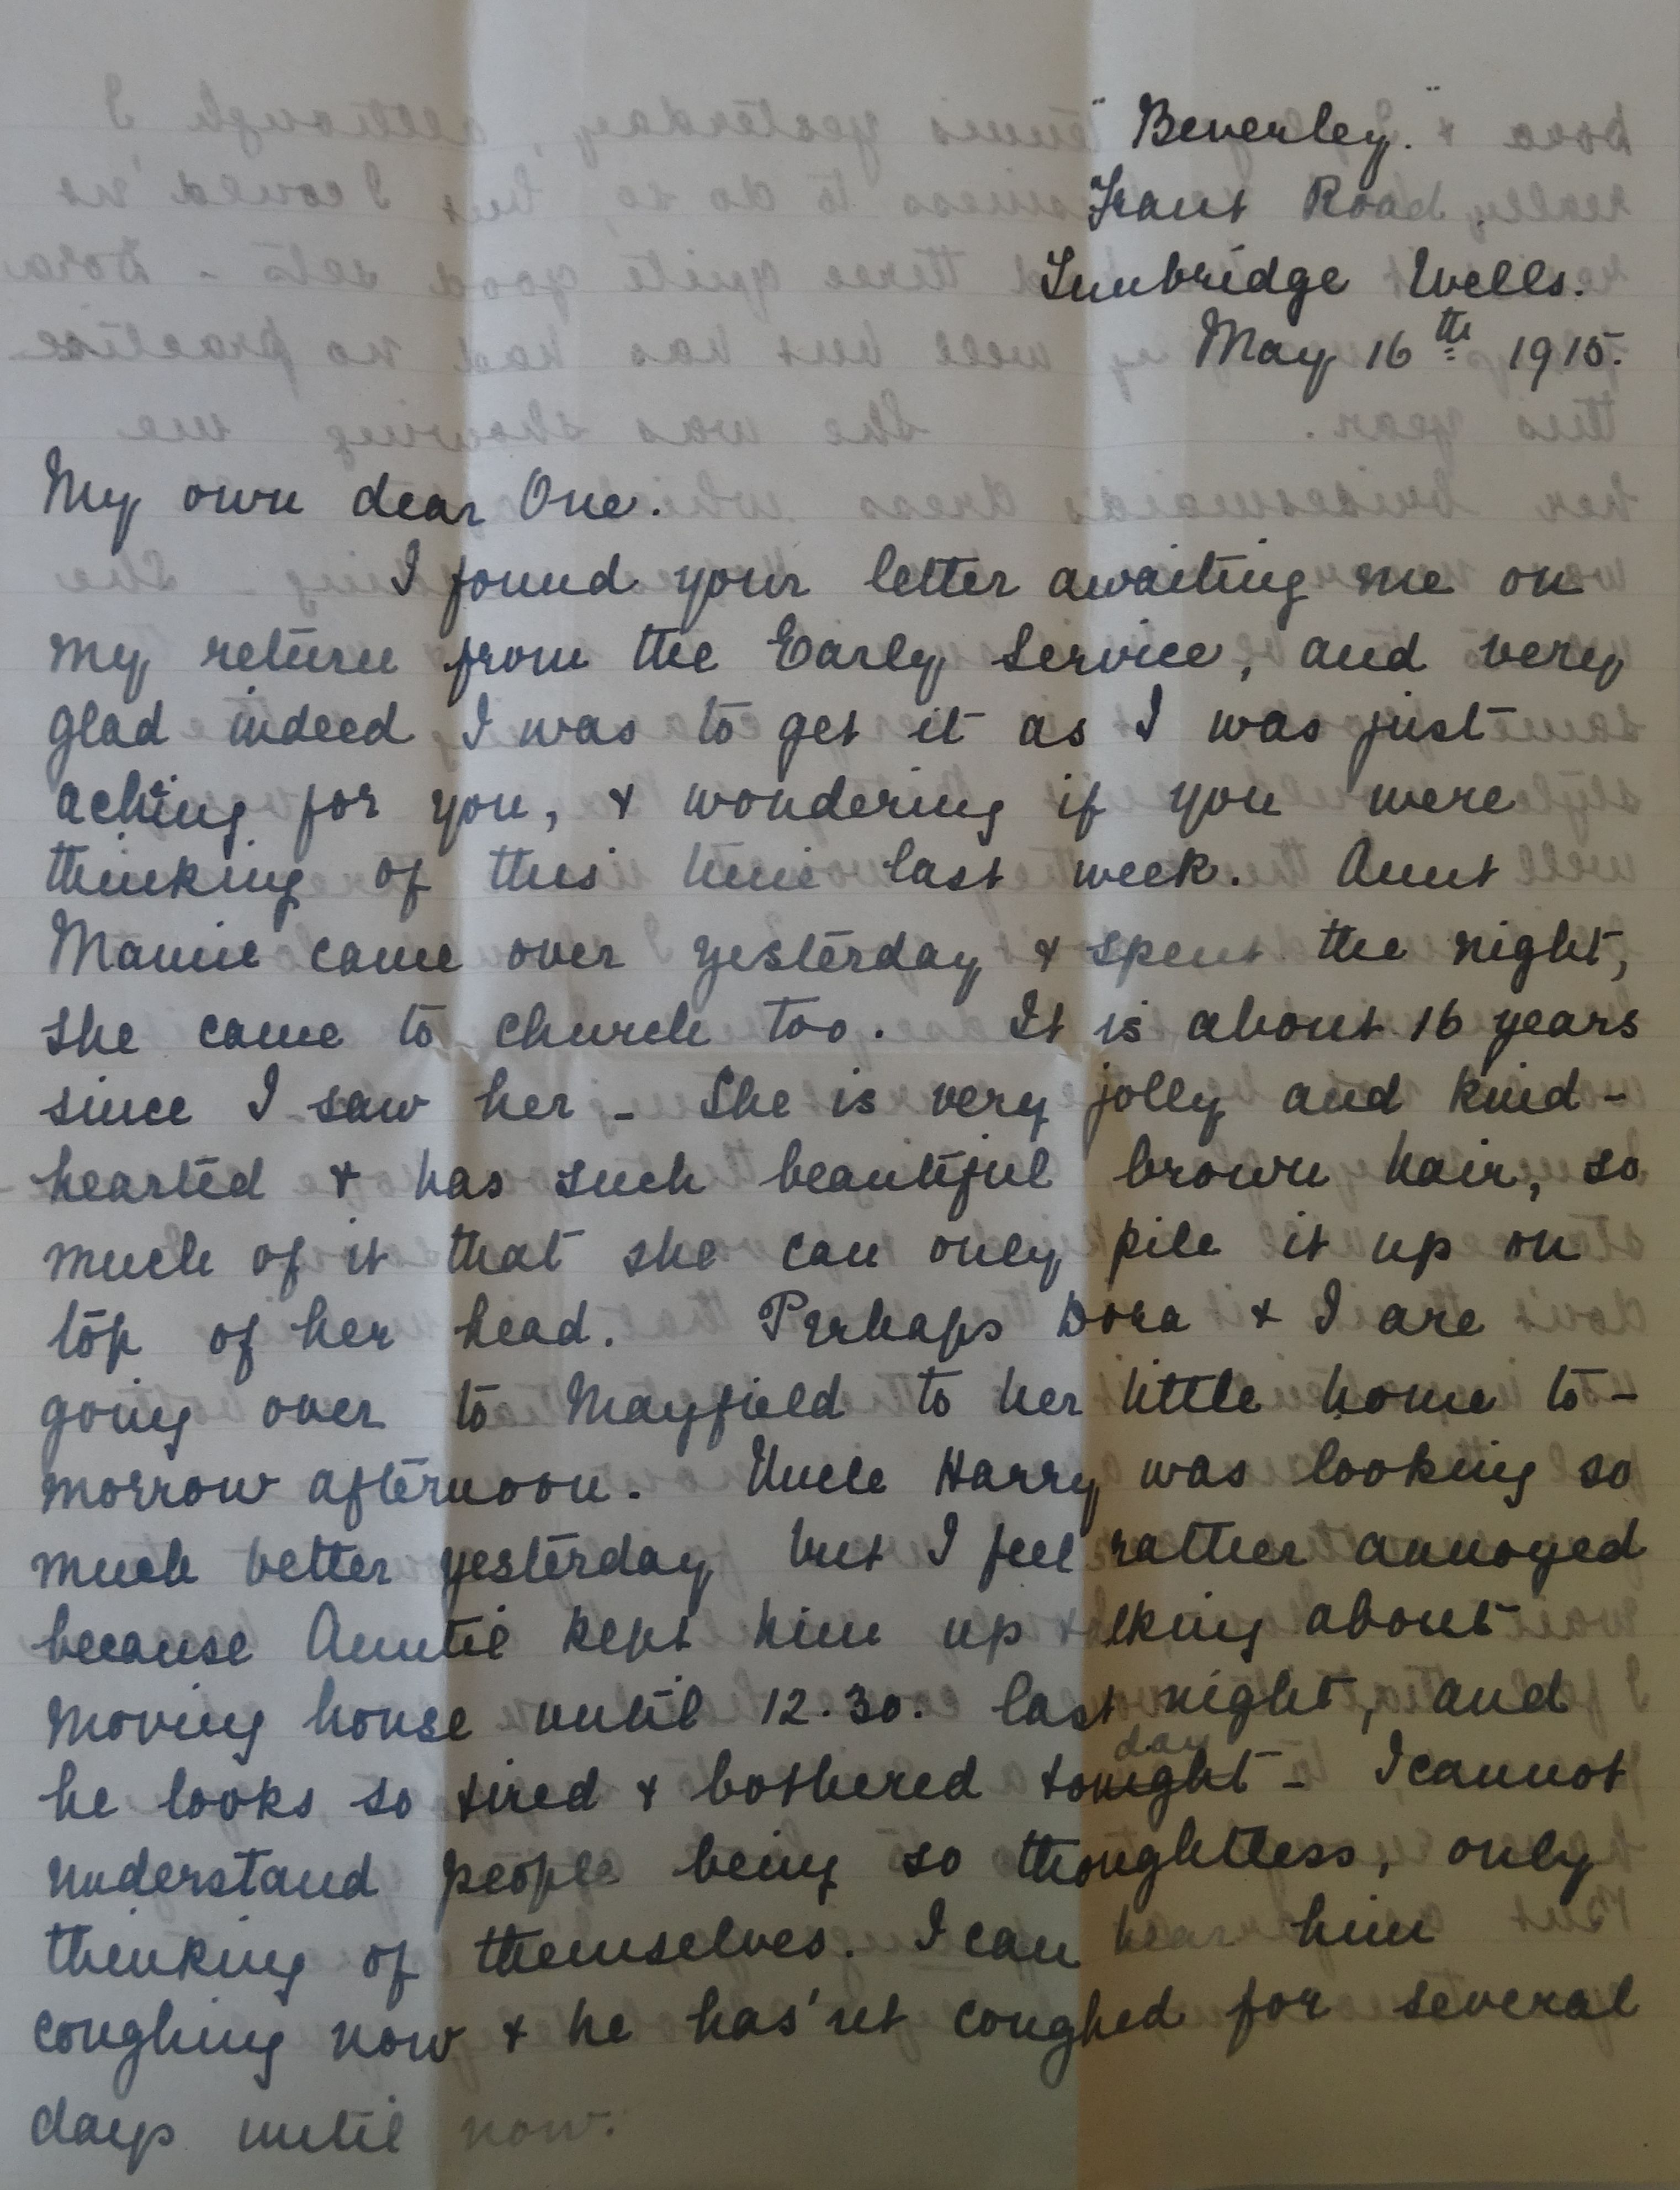 "Beverley."
Frant Road.
Tunbridge Wells.
May 16th 1915.
My own dear One.
I found your letter awaiting me on
my return from the Early Service, and very
glad indeed I was to get it as I was just
aching for you, & wondering if you were
thinking of this time last week. Aunt
Mamie came over yesterday & spent the night,
she came to church too. It is about 16 years
since I saw her - She is very jolly and kind-
hearted & has such beautiful brown hair, so
much of it that she can only pile it up on
top of her head. Perhaps Dora & I are
going over to Mayfield to her little home to-
morrow afternoon. Uncle Harry was looking so
much better yesterday but I feel rather annoyed
because Auntie kept him up talking about
moving house until 12.30. last night, and
he looks so tired & bothered tonight day - I cannot
understand people being so thoughtless, only
thinking of themselves. I can hear him
coughing now & he has'nt coughed for several
days until now.